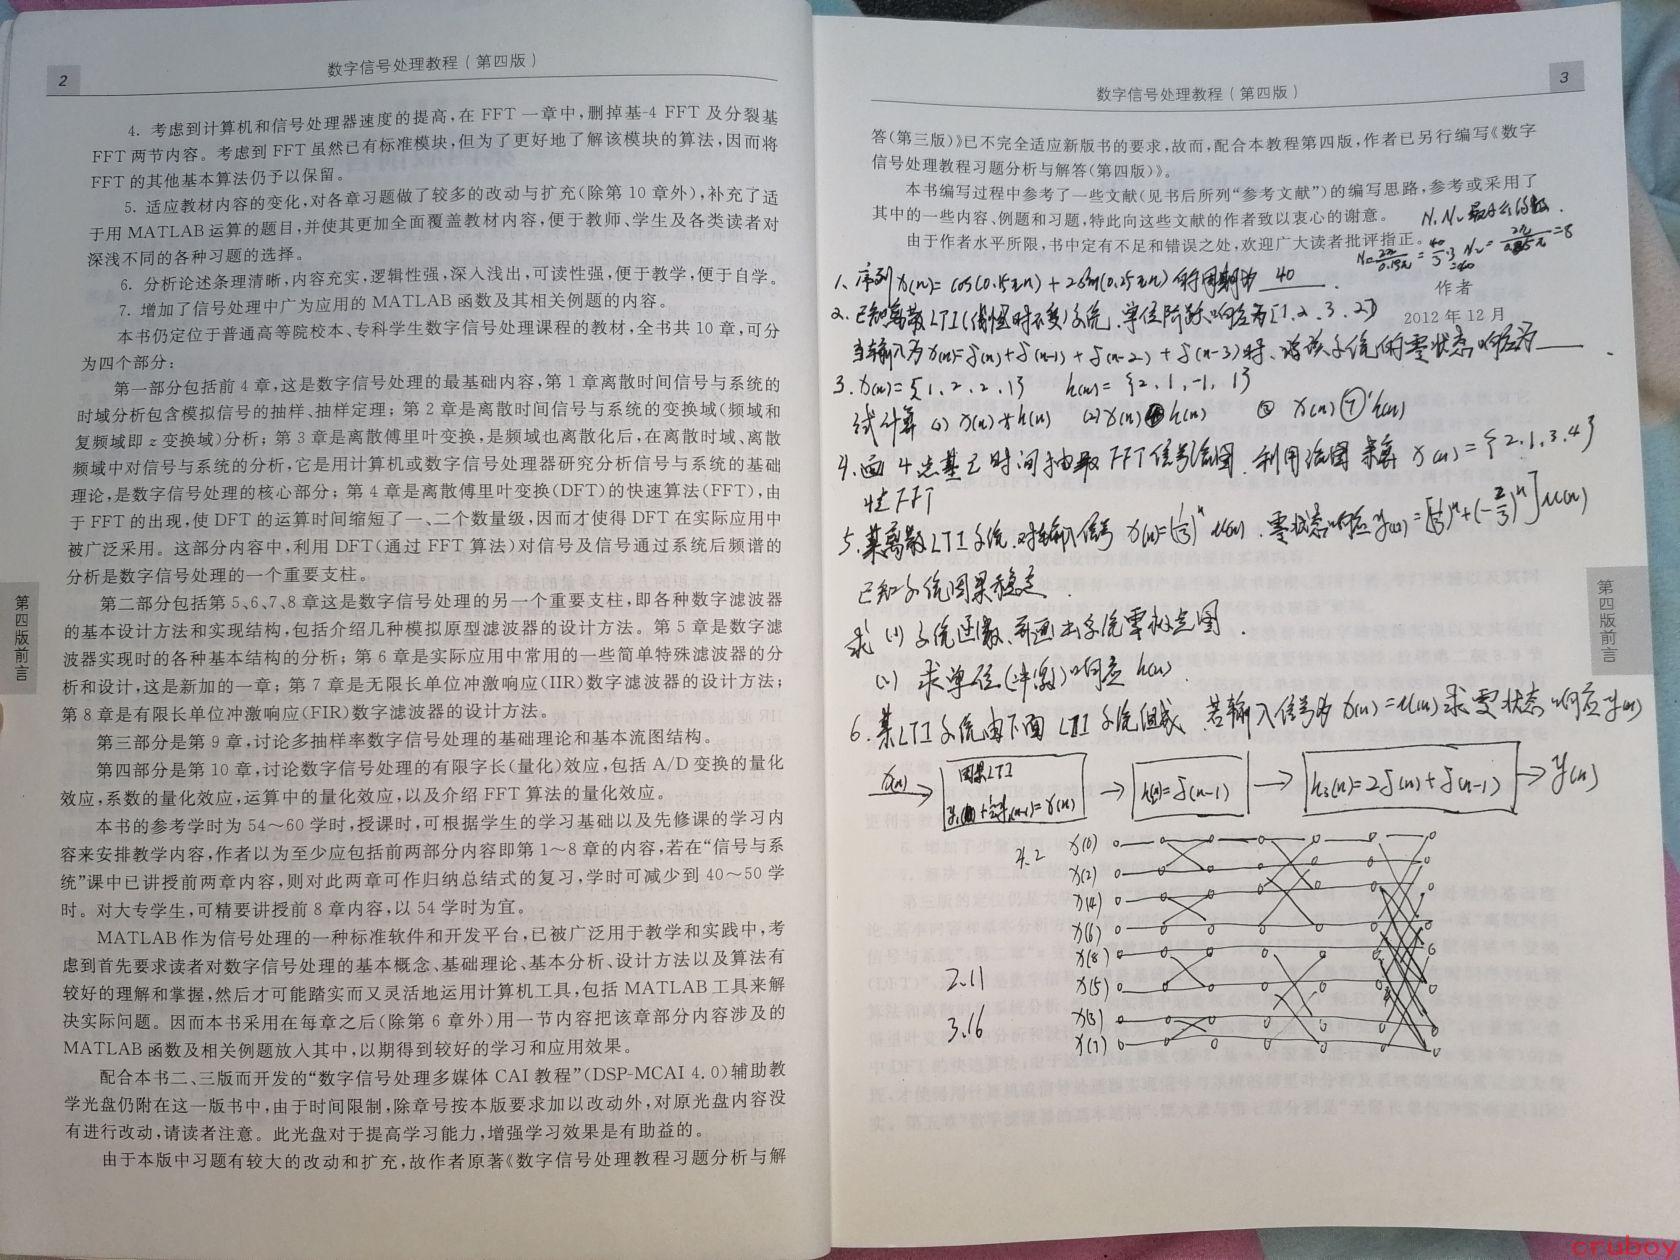 2
数字信号处理教程(第四版)
4. 考虑到计算机和信号处理器速度的提高,在 FFT 一章中,删掉基-4 FFT 及分裂基
FFT 两节内容。考虑到 FFT 虽然已有标准模块,但为了更好地了解该模块的算法,因而将
FFT 的其他基本算法仍予以保留。
5. 适应教材内容的变化,对各章习题做了较多的改动与扩充(除第 10 章外),补充了适
于用 MATLAB 运算的题目,并使其更加全面覆盖教材内容,便于教师、学生及各类读者对
深浅不同的各种习题的选择。
6. 分析论述条理清晰,内容充实,逻辑性强,深入浅出,可读性强,便于教学,便于自学。
7. 增加了信号处理中广为应用的 MATLAB 函数及其相关例题的内容。
本书仍定位于普通高等院校本、专科学生数字信号处理课程的教材,全书共 10 章,可分
为四个部分:
第一部分包括前 4 章,这是数字信号处理的最基础内容,第 1 章离散时间信号与系统的
时域分析包含模拟信号的抽样、抽样定理;第 2 章是离散时间信号与系统的变换域(频域和
复频域即 z 变换域)分析;第 3 章是离散傅里叶变换,是频域也离散化后,在离散时域、离散
频域中对信号与系统的分析,它是用计算机或数字信号处理器研究分析信号与系统的基础
理论,是数字信号处理的核心部分;第 4 章是离散傅里叶变换(DFT)的快速算法(FFT),由
于 FFT 的出现,使 DFT 的运算时间缩短了一、二个数量级,因而才使得 DFT 在实际应用中
被广泛采用。这部分内容中,利用 DFT(通过 FFT 算法)对信号及信号通过系统后频谱的
分析是数字信号处理的一个重要支柱。
第二部分包括第 5、6、7、8 章这是数字信号处理的另一个重要支柱,即各种数字滤波器
的基本设计方法和实现结构,包括介绍几种模拟原型滤波器的设计方法。第 5 章是数字滤
波器实现时的各种基本结构的分析;第 6 章是实际应用中常用的一些简单特殊滤波器的分
析和设计,这是新加的一章;第 7 章是无限长单位冲激响应(IIR)数字滤波器的设计方法;
第 8 章是有限长单位冲激响应(FIR)数字滤波器的设计方法。
第三部分是第 9 章,讨论多抽样率数字信号处理的基础理论和基本流图结构。
第四部分是第 10 章,讨论数字信号处理的有限字长(量化)效应,包括 A/D 变换的量化
效应,系数的量化效应,运算中的量化效应,以及介绍 FFT 算法的量化效应。
本书的参考学时为 54~60 学时,授课时,可根据学生的学习基础以及先修课的学习内
容来安排教学内容,作者以为至少应包括前两部分内容即第 1~8 章的内容,若在“信号与系
统”课中已讲授前两章内容,则对此两章可作归纳总结式的复习,学时可减少到 40~50 学
时。对大专学生,可精要讲授前 8 章内容,以 54 学时为宜。
MATLAB 作为信号处理的一种标准软件和开发平台,已被广泛用于教学和实践中,考
虑到首先要求读者对数字信号处理的基本概念、基础理论、基本分析、设计方法以及算法有
较好的理解和掌握,然后才可能踏实而又灵活地运用计算机工具,包括 MATLAB 工具来解
决实际问题。因而本书采用在每章之后(除第 6 章外)用一节内容把该章部分内容涉及的
MATLAB 函数及相关例题放入其中,以期得到较好的学习和应用效果。
配合本书二、三版而开发的“数字信号处理多媒体 CAI 教程”(DSP-MCAI 4.0)辅助教
学光盘仍附在这一版书中,由于时间限制,除章号按本版要求加以改动外,对原光盘内容没
有进行改动,请读者注意。此光盘对于提高学习能力,增强学习效果是有助益的。
由于本版中习题有较大的改动和扩充,故作者原著《数字信号处理教程习题分析与解
第四版前言
数字信号处理教程(第四版)
3
答(第三版)》已不完全适应新版书的要求,故而,配合本教程第四版,作者已另行编写《数字
信号处理教程习题分析与解答(第四版)》。
本书编写过程中参考了一些文献(见书后所列“参考文献”)的编写思路,参考或采用了
其中的一些内容、例题和习题,特此向这些文献的作者致以衷心的谢意。
由于作者水平所限,书中定有不足和错误之处,欢迎广大读者批评指正。
作者
2012 年 12 月
1. 序列 x(n)= cos(0.15πn) + 2sin(0.25πn) 的周期为 40 .
2. 已知离散LTI(线性时不变)系统,单位阶跃响应为[1,2,3,2]
当输入为 x(n)=δ(n)+δ(n-1)+δ(n-2)+δ(n-3)时,该系统的零状态响应为
3. x(n)={1,2,2,1} h(n)={2,1,-1,1}
试计算 (1) x(n)*h(n) (2) x(n) h(n) ③ x(n)⑦h(n)
4. 画4点基2时间抽取FFT信号流图,利用流图 x(n)={2,1,3,4}
FFT
5. 某离散LTI系统,对输入信号 x(n)=(1/3)^n u(n),零状态响应 y(n)=[(1/3)^n+(-2/3)^n]u(n)
已知系统因果稳定
求 (1) 系统函数,并画出系统零极点图.
(2) 求单位(冲激)响应 h(n).
6. 某LTI系统由下面LTI子系统组成,若输入信号为 x(n)=u(n) 求零状态响应 y(n)
x(n)
因果LTI
h(n)=δ(n-1)
h₃(n)=2δ(n)+δ(n-1)
y(n)
4.2
x(0)
x(2)
x(4)
x(6)
x(8)
x(5)
x(3)
x(7)
2.11
3.16
第四版前言
cruboy